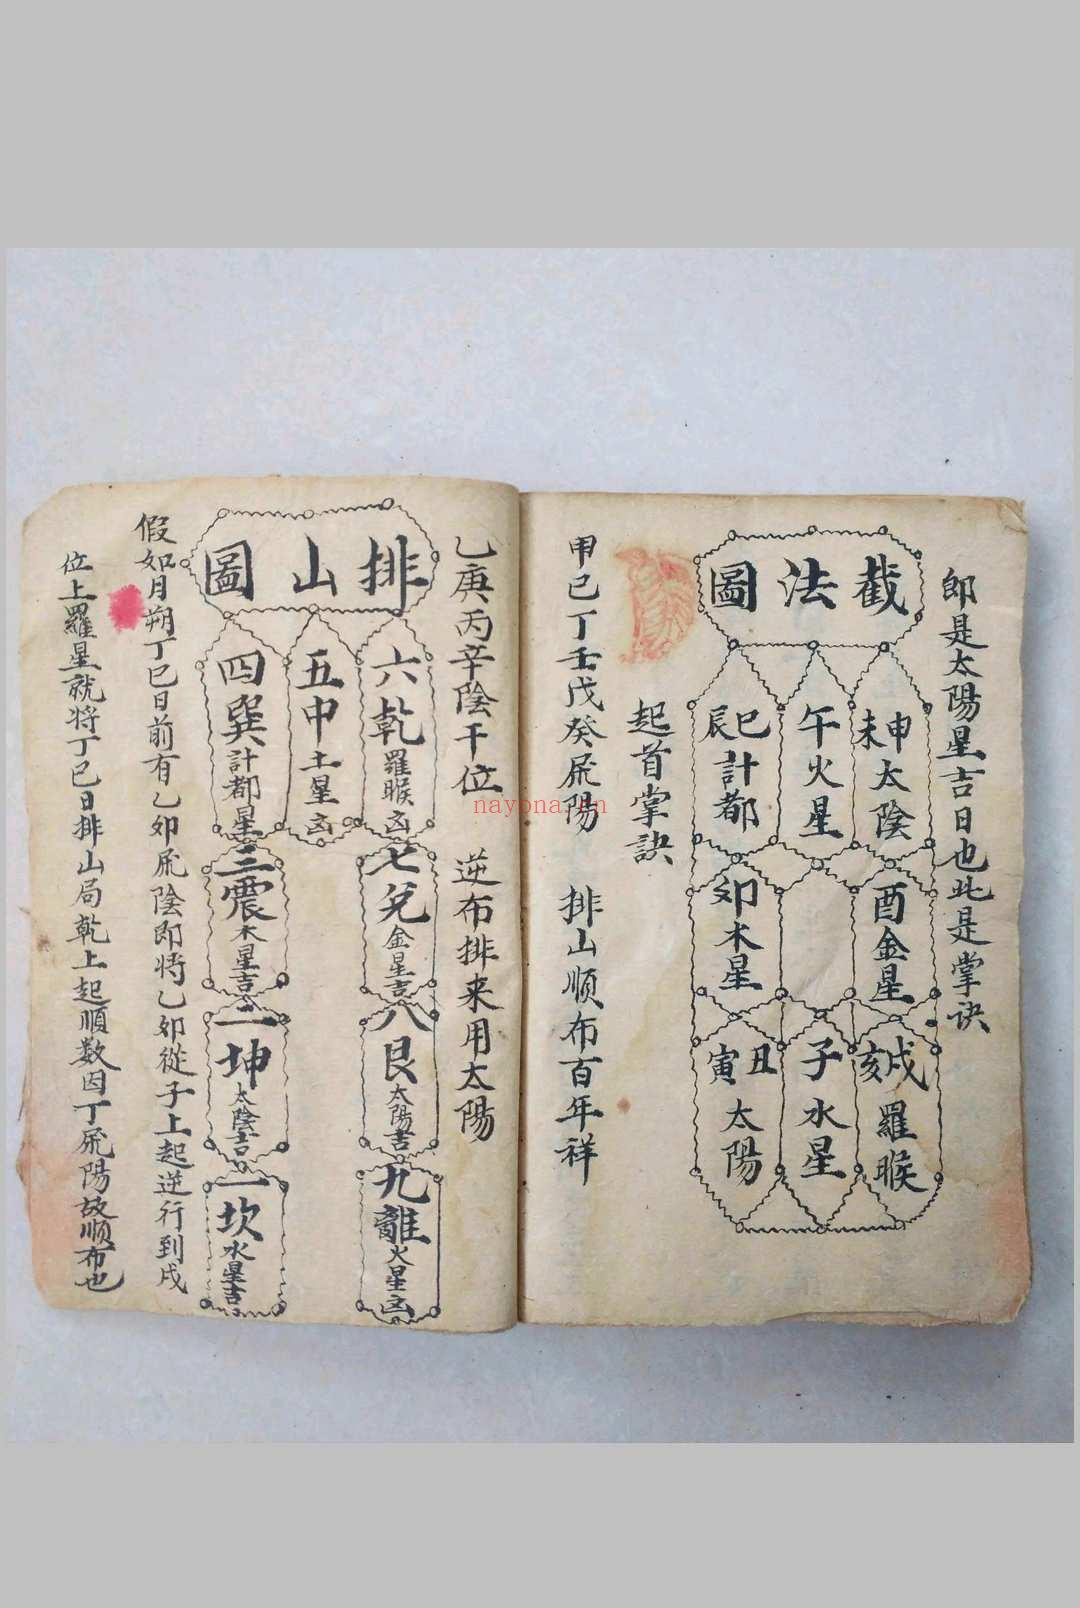 即是太陽星吉日也此是掌訣
截法圖
申未太陰
午火星
巳辰計都
酉金星
卯木星
戌亥羅睺
子水星
丑寅太陽
起首掌訣
甲己丁壬戊癸飛陽 排山順布百年祥
乙庚丙辛陰干位 逆布排来用太陽
排山圖
六乾羅睺凶
五中土星凶
四巽計都星
七兌金星吉
三震木星吉
八艮太陽吉
二坤太陰吉
九離火星凶
一坎水星吉
假如月朔丁巳日前有乙卯飛陰即将乙卯從子上起逆行到戌
位上羅星就将丁巳日排山局乾上起順数因丁飛陽故順布也
nayona.cn